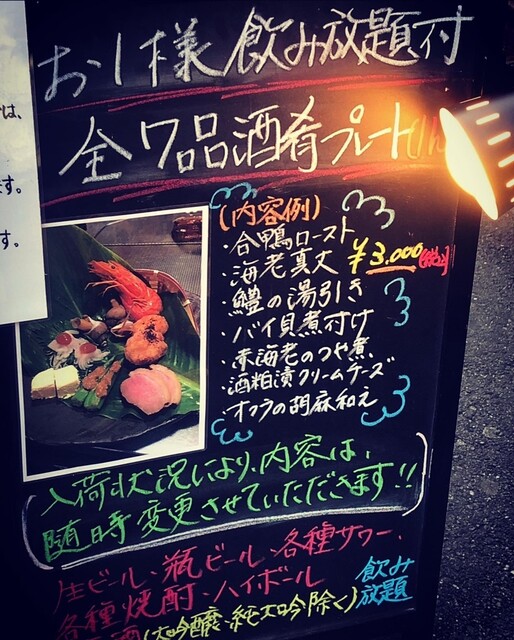 おし様 飲み放題付
全7品酒肴プレート(1h
(内容例)
・合鴨ロースト
・海老真丈 ¥3,000(税込)
・鱧の湯引き
・バイ貝煮付け
・赤海老のつや煮
・酒粕漬クリームチーズ
・オクラの胡麻和え
入荷状況により、内容は、
随時変更させていただきます!!
生ビール・瓶ビール・各種サワー、
各種焼酎・ハイボール 飲み放題
酒(大吟醸・純大吟除く)
は、
ます。
す。